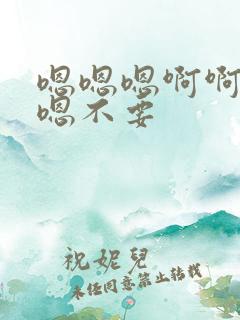 嗯嗯嗯啊啊
嗯不要
祝妮儿
未经同意禁止转载